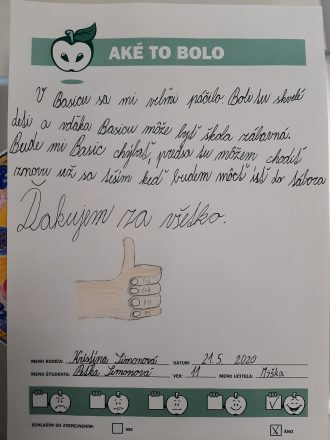 AKÉ TO BOLO
V Basicu sa mi veľmi páčilo Boli su skvelé
deti a vďaka Basicu môže byť škola zábavná.
Bude mi Basic chýbať, predsa su môžem chodiť
znovu už sa teším keď budem môcť ísť do tábora
Ďakujem za všetko.
MENO RODIČA: Kristína Simonová DÁTUM: 21.5 2020
MENO ŠTUDENTA: Peťka Simonová VEK: 11 MENO UČITEĽA: Miška
SÚHLASÍM SO ZVEREJNENÍM: NIE X ÁNO